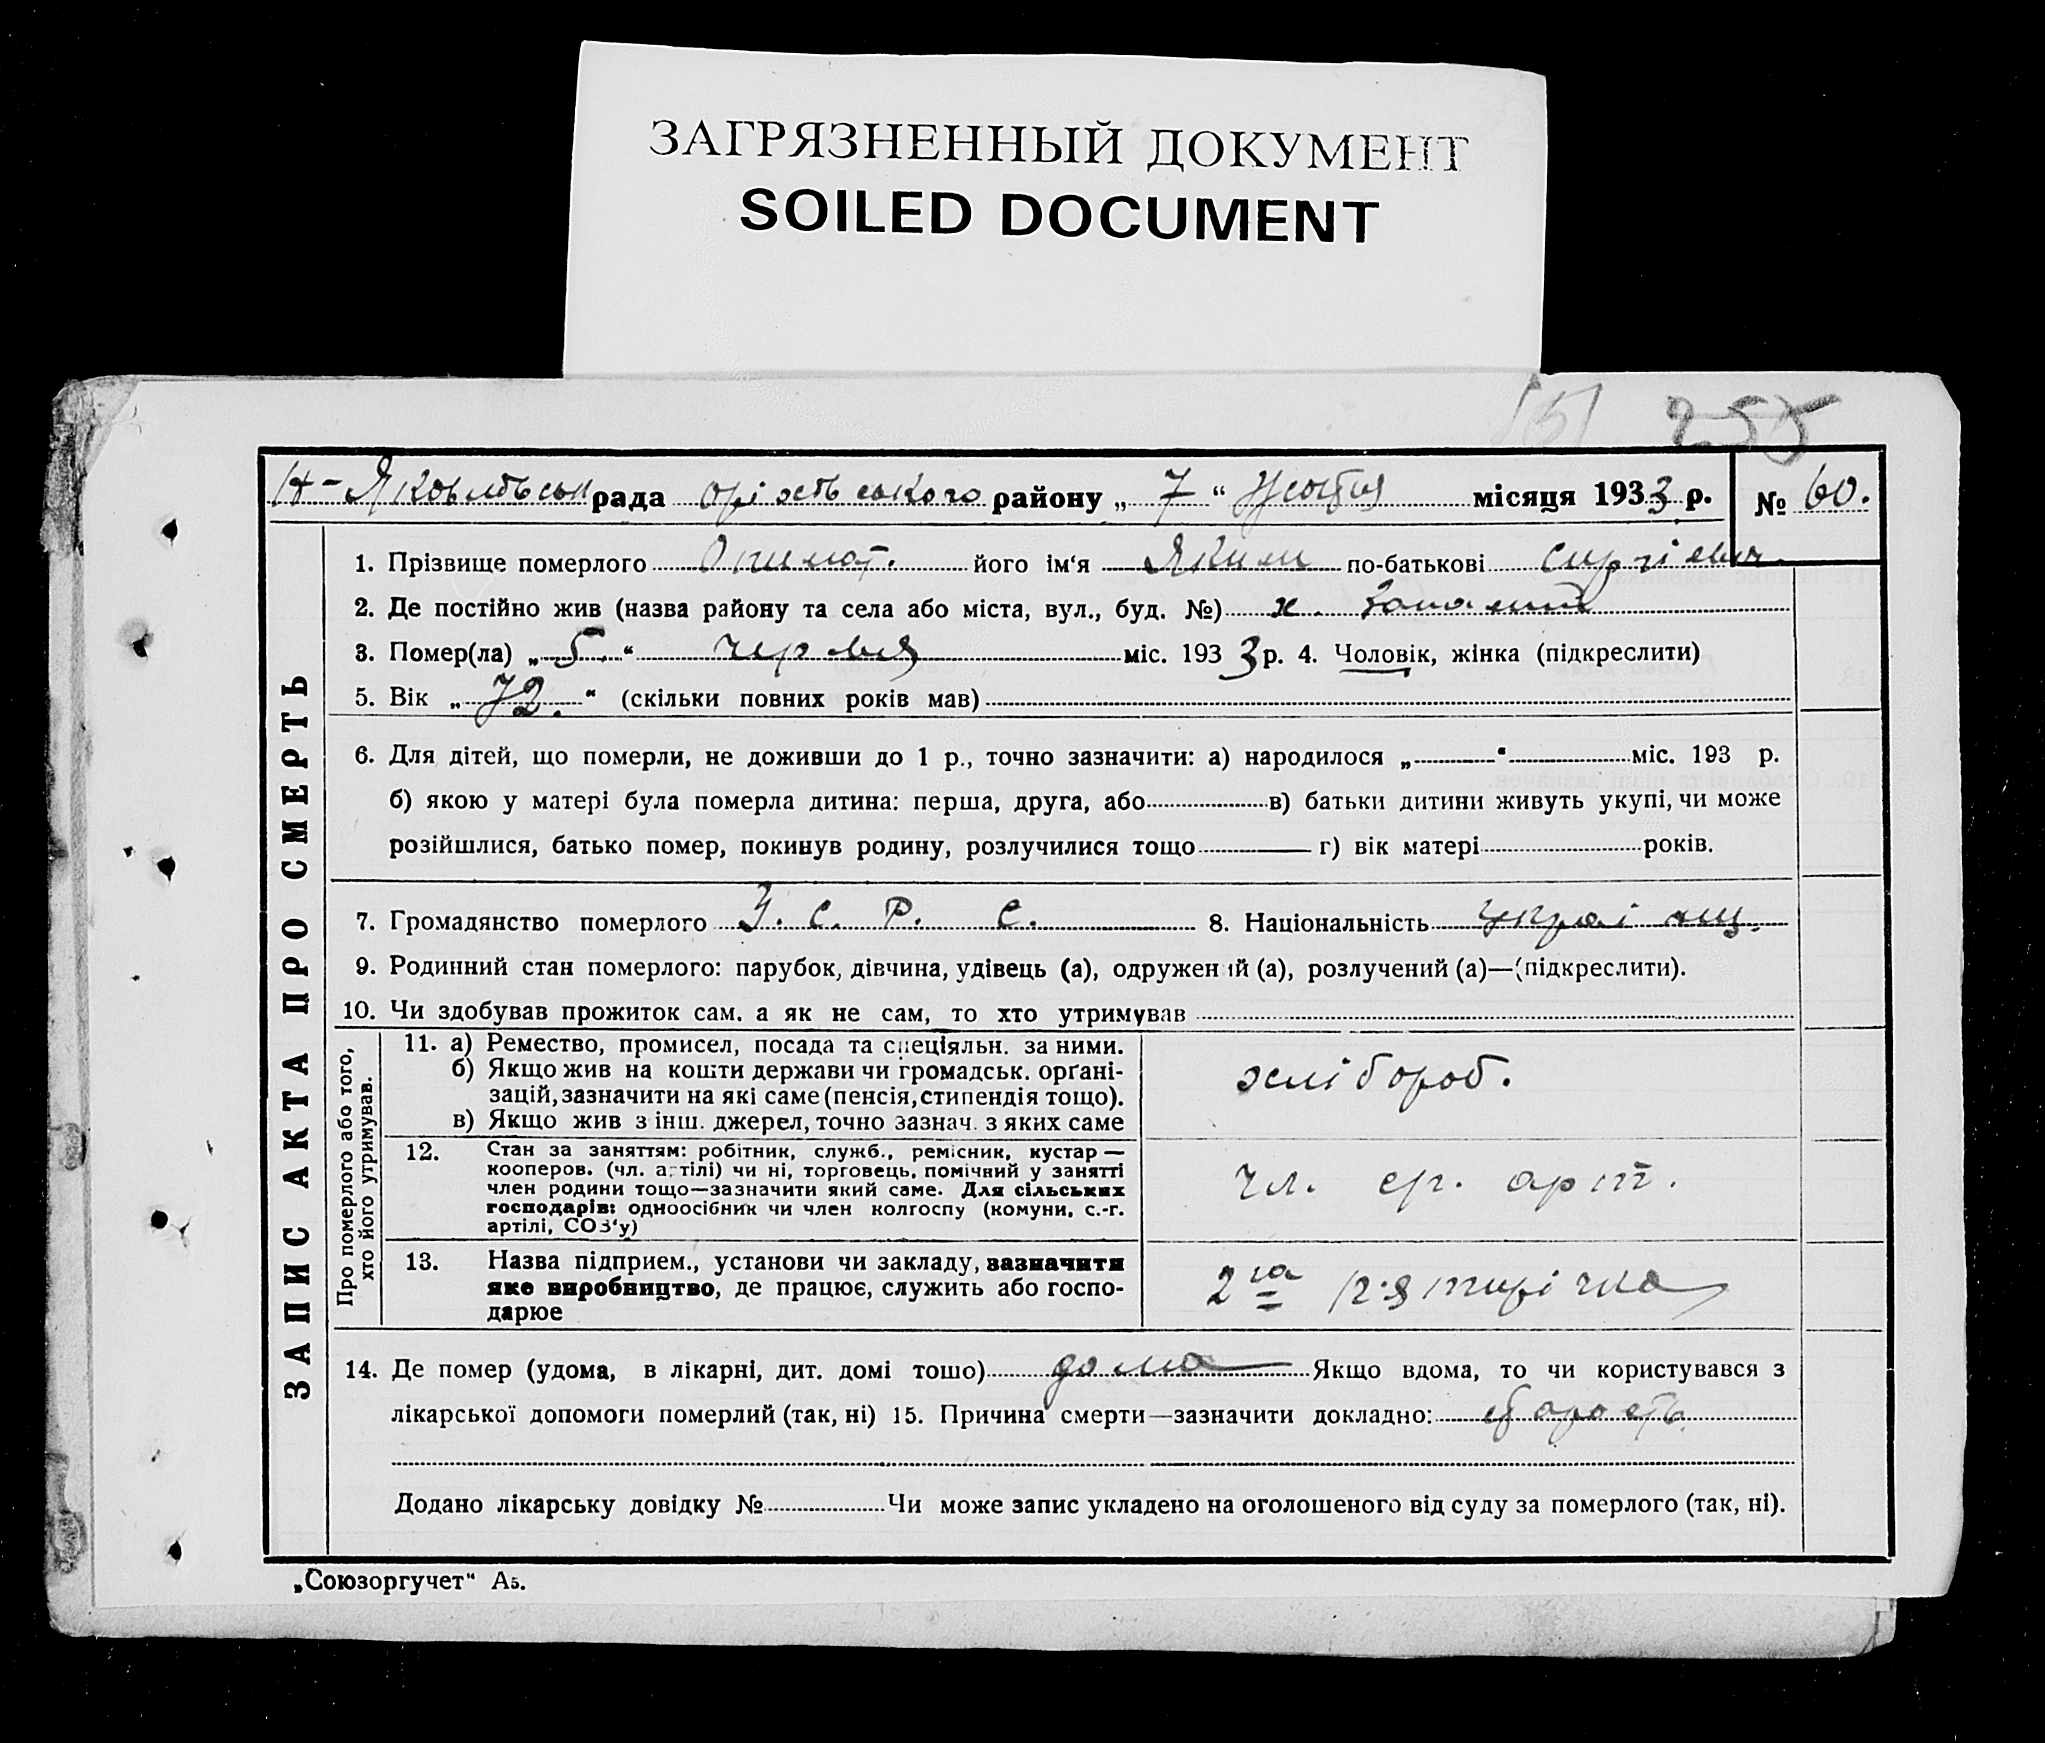 ЗАГРЯЗНЕННЫЙ ДОКУМЕНТ
SOILED DOCUMENT
151 255
рада району „ 7 “ місяця 1933 р. № 60.
1. Прізвище померлого його ім‘я Яким по-батькові Сиргієвич
2. Де постійно жив (назва району та села або міста, вул., буд. №) х.
3. Помер(ла) „ 5. “ червня міс. 193 3 р. 4. Чоловік, жінка (підкреслити)
5. Вік „ 72. “ (скільки повних років мав)
6. Для дітей, що померли, не доживши до 1 р., точно зазначити: а) народилося „ “ міс. 193 р.
б) якою у матері була померла дитина: перша, друга, або в) батьки дитини живуть укупі, чи може
розійшлися, батько помер, покинув родину, розлучилися тощо г) вік матері років.
7. Громадянство померлого У. С. Р. С. 8. Національність україн͏ець
9. Родинний стан померлого: парубок, дівчина, удівець (а), одружен ій (а), розлучений (а)—(підкреслити).
10. Чи здобував прожиток сам. а як не сам, то хто утримував
ЗАПИС АКТА ПРО СМЕРТЬ
Про померлого або того,
хто його утримував.
11. а) Ремество, промисел, посада та спеціяльн. за ними.
б) Якщо жив на кошти держави чи громадськ. орґані-
зацій, зазначити на які саме (пенсія, стипендія тощо).
в) Якщо жив з інш. джерел, точно зазнач. з яких саме
хлібороб.
12. Стан за заняттям: робітник, служб., ремісник, кустар—
кооперов. (чл. артілі) чи ні, торговець, помічний у занятті
член родини тощо—зазначити який саме. Для сільських
господарів: одноосібник чи член колгоспу (комуни, с.-г.
артілі, СОЗ‘у)
чл. ср. арт.
13. Назва підприєм., установи чи закладу, зазначити
яке виробництво, де працює, служить або госпо-
дарює
2га п‘ятирічка
14. Де помер (удома, в лікарні, дит. домі тошо) дома Якщо вдома, то чи користувався з
лікарської допомоги померлий (так, ні) 15. Причина смерти—зазначити докладно: старость.
Додано лікарську довідку № Чи може запис укладено на оголошеного від суду за померлого (так, ні).
„Союзоргучет“ А5.